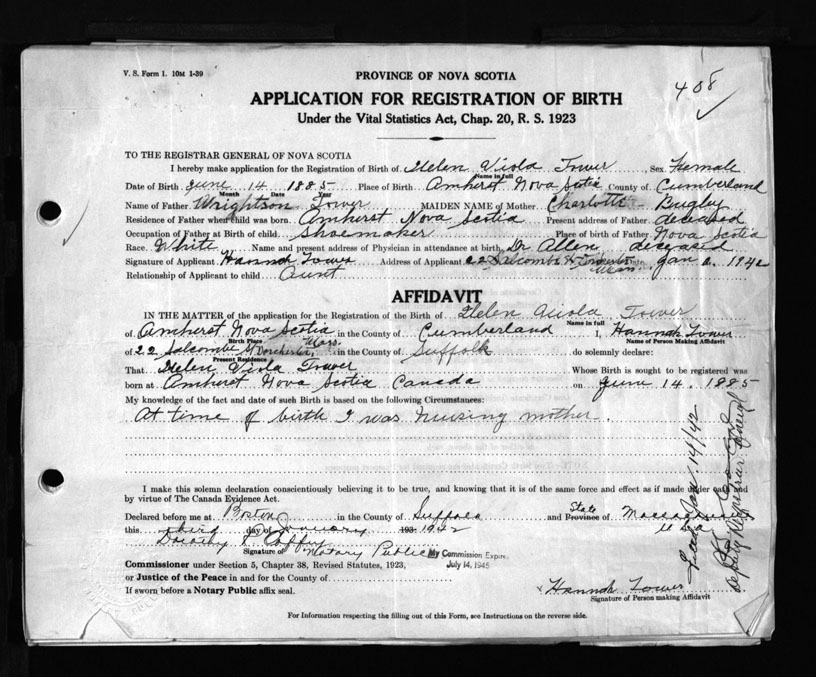 V. S. Form 1. 10M 1-39
PROVINCE OF NOVA SCOTIA
408
APPLICATION FOR REGISTRATION OF BIRTH
Under the Vital Statistics Act, Chap. 20, R. S. 1923
TO THE REGISTRAR GENERAL OF NOVA SCOTIA
I hereby make application for the Registration of Birth of Helen Viola Tower Sex Female
Name in full
Date of Birth June 14 1885 Place of Birth Amherst Nova Scotia County of Cumberland
Month Date Year
Name of Father Wrightson Tower MAIDEN NAME of Mother Charlotte Bugley
Residence of Father when child was born Amherst Nova Scotia Present address of Father deceased
Occupation of Father at Birth of child Shoemaker Place of birth of Father Nova Scotia
Race White Name and present address of Physician in attendance at birth Dr Allen, deceased
Signature of Applicant Hannah Tower Address of Applicant 22 Salcombe St Dorchester Date Jan 2, 1942
Mass.
Relationship of Applicant to child Aunt
AFFIDAVIT
IN THE MATTER of the application for the Registration of the Birth of Helen Viola Tower
Name in full
of Amherst Nova Scotia in the County of Cumberland I, Hannah Tower
Birth Place Name of Person Making Affidavit
of 22 Salcombe St Dorchester, Mass. in the County of Suffolk do solemnly declare:
Present Residence
That Helen Viola Tower Whose Birth is sought to be registered was
born at Amherst Nova Scotia Canada on June 14. 1885
My knowledge of the fact and date of such Birth is based on the following Circumstances:
At time of birth I was Nursing mother.
I make this solemn declaration conscientiously believing it to be true, and knowing that it is of the same force and effect as if made under oath and
by virtue of The Canada Evidence Act.
Declared before me at Boston in the County of Suffolk and State Province of Massachusetts
this third day of January 193 1942 U.S.A.
Dorothy F.
Signature of Notary Public My Commission Expires
July 14, 1945
Commissioner under Section 5, Chapter 38, Revised Statutes, 1923,
or Justice of the Peace in and for the County of
If sworn before a Notary Public affix seal.
x Hannah Tower
Signature of Person making Affidavit
For Information respecting the filling out of this Form, see Instructions on the reverse side.
Jan. 14/42
Deputy Registrar General